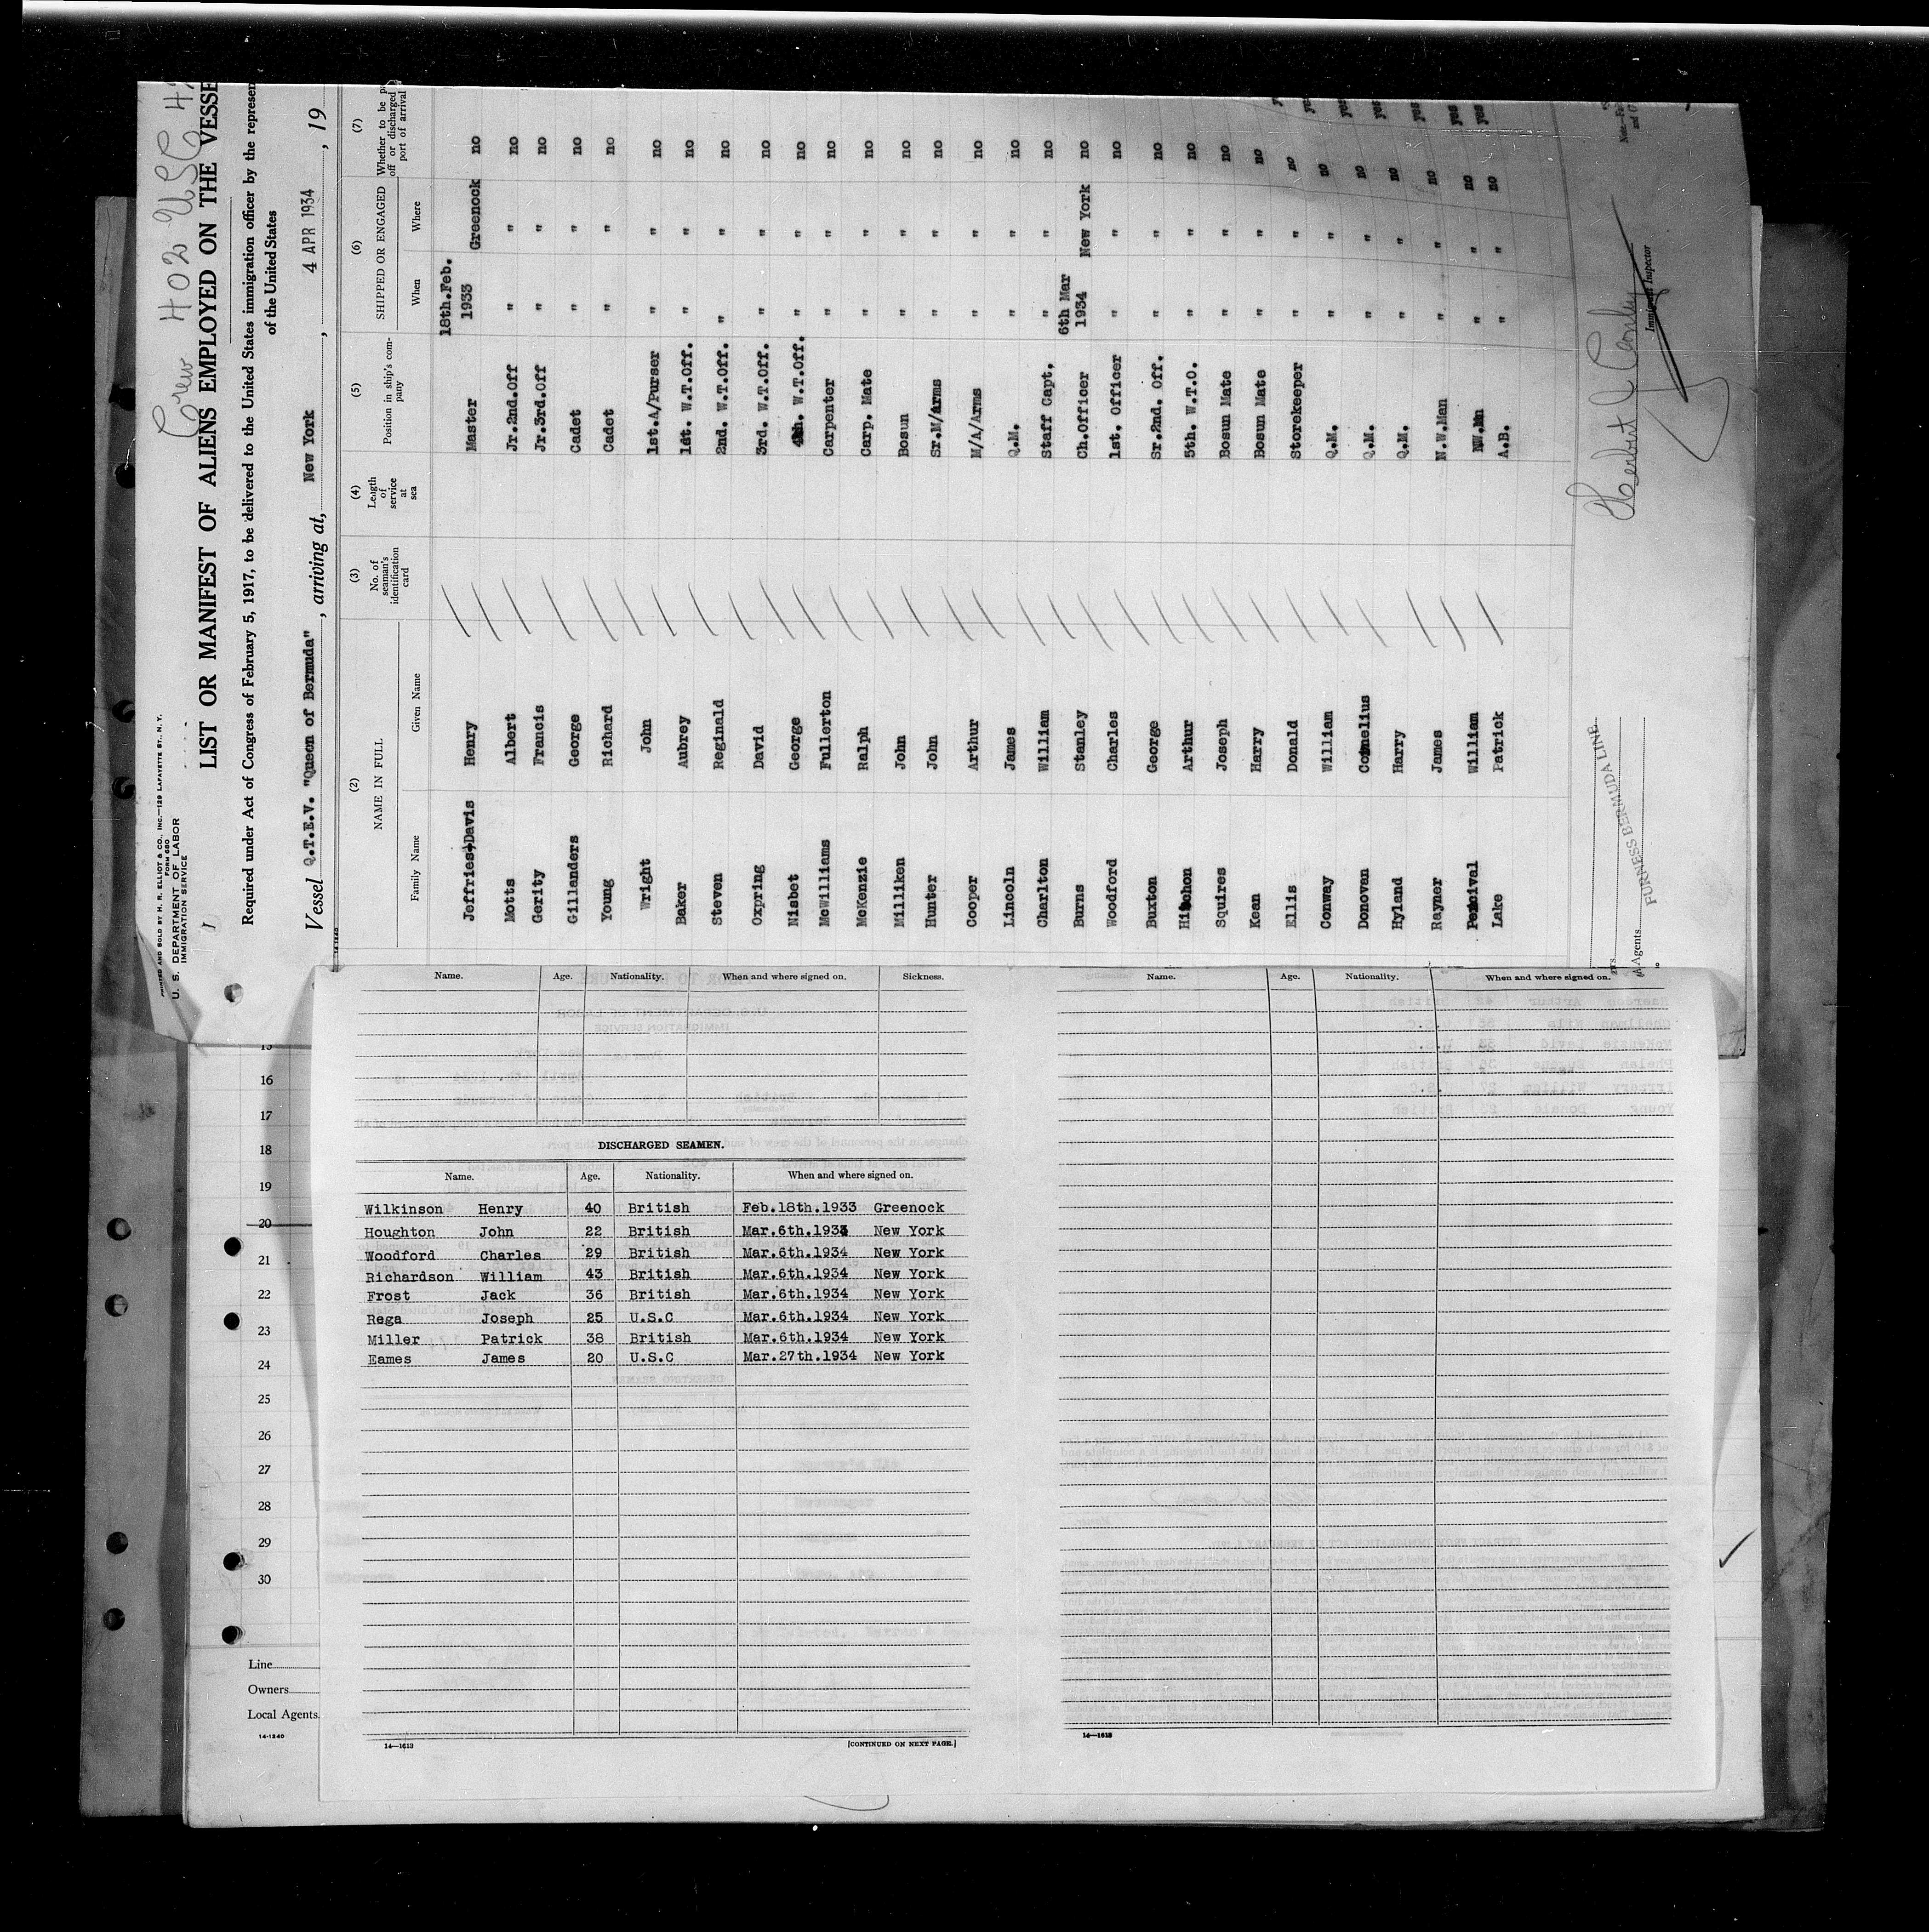 Crew 402 USC 4
PRINTED AND SOLD BY H. R. ELLIOT & CO., INC.—129 LAFAYETTE ST., N. Y.
FORM 680
U. S. DEPARTMENT OF LABOR
IMMIGRATION SERVICE
1
LIST OR MANIFEST OF ALIENS EMPLOYED ON THE VESSE
Required under Act of Congress of February 5, 1917, to be delivered to the United States immigration officer by the represen
of the United States
Vessel Q.T.E.V. "Queen of Bermuda", arriving at, New York, 4 APR 1934, 19
14-1240
(2) (3) (4) (5) (6) (7)
NAME IN FULL No. of seaman's identification card Length of service at sea Position in ship's company SHIPPED OR ENGAGED Whether to be pa off or discharged port of arrival
Family Name Given Name When Where
Jeffries+Davis Henry Master 18th.Feb. 1933 Greenock no
Motts Albert Jr.2nd.Off " " no
Gerity Francis Jr.3rd.Off " " no
Gillanders George Cadet " " no
Young Richard Cadet " " no
Wright John 1st.A/Purser " " no
Baker Aubrey 1st. W.T.Off. " " no
Steven Reginald 2nd. W.T.Off. " " no
Oxpring David 3rd. W.T.Off. " " no
Nisbet George 4th. W.T.Off. " " no
McWilliams Fullerton Carpenter " " no
McKenzie Ralph Carp. Mate " " no
Milliken John Bosun " " no
Hunter John Sr.M/Arms " " no
Cooper Arthur M/A/Arms " " no
Lincoln James Q.M. " " no
Charlton William Staff Capt. " " no
Burns Stanley Ch.Officer 6th Mar 1934 New York no
Woodford Charles 1st. Officer " " no
Buxton George Sr.2nd. Off. " " no
Hitchon Arthur 5th. W.T.O. " " no
Squires Joseph Bosun Mate " " no
Kean Harry Bosun Mate " " no
Ellis Donald Storekeeper " " no
Conway William Q.M. " " no yes
Donovan Cornelius Q.M. " " no yes
Hyland Harry Q.M. " " no yes
Rayner James N.W.Man " " no yes
Percival William NW.Mn " " no yes
Lake Patrick A.B. " " no yes
FURNESS BERMUDA LINE
Agents
Immigrant Inspector
Name. Age. Nationality. When and where signed on. Sickness.
DISCHARGED SEAMEN.
Name. Age. Nationality. When and where signed on.
Wilkinson Henry 40 British Feb.18th.1933 Greenock
Houghton John 22 British Mar.6th.1934 New York
Woodford Charles 29 British Mar.6th.1934 New York
Richardson William 43 British Mar.6th.1934 New York
Frost Jack 36 British Mar.6th.1934 New York
Rega Joseph 25 U.S.C Mar.6th.1934 New York
Miller Patrick 38 British Mar.6th.1934 New York
Eames James 20 U.S.C Mar.27th.1934 New York
14—1613
[CONTINUED ON NEXT PAGE.]
Name. Age. Nationality. When and where signed on.
14—1613
15
16
17
18
19
20
21
22
23
24
25
26
27
28
29
30
Line
Owners
Local Agents
14-1240